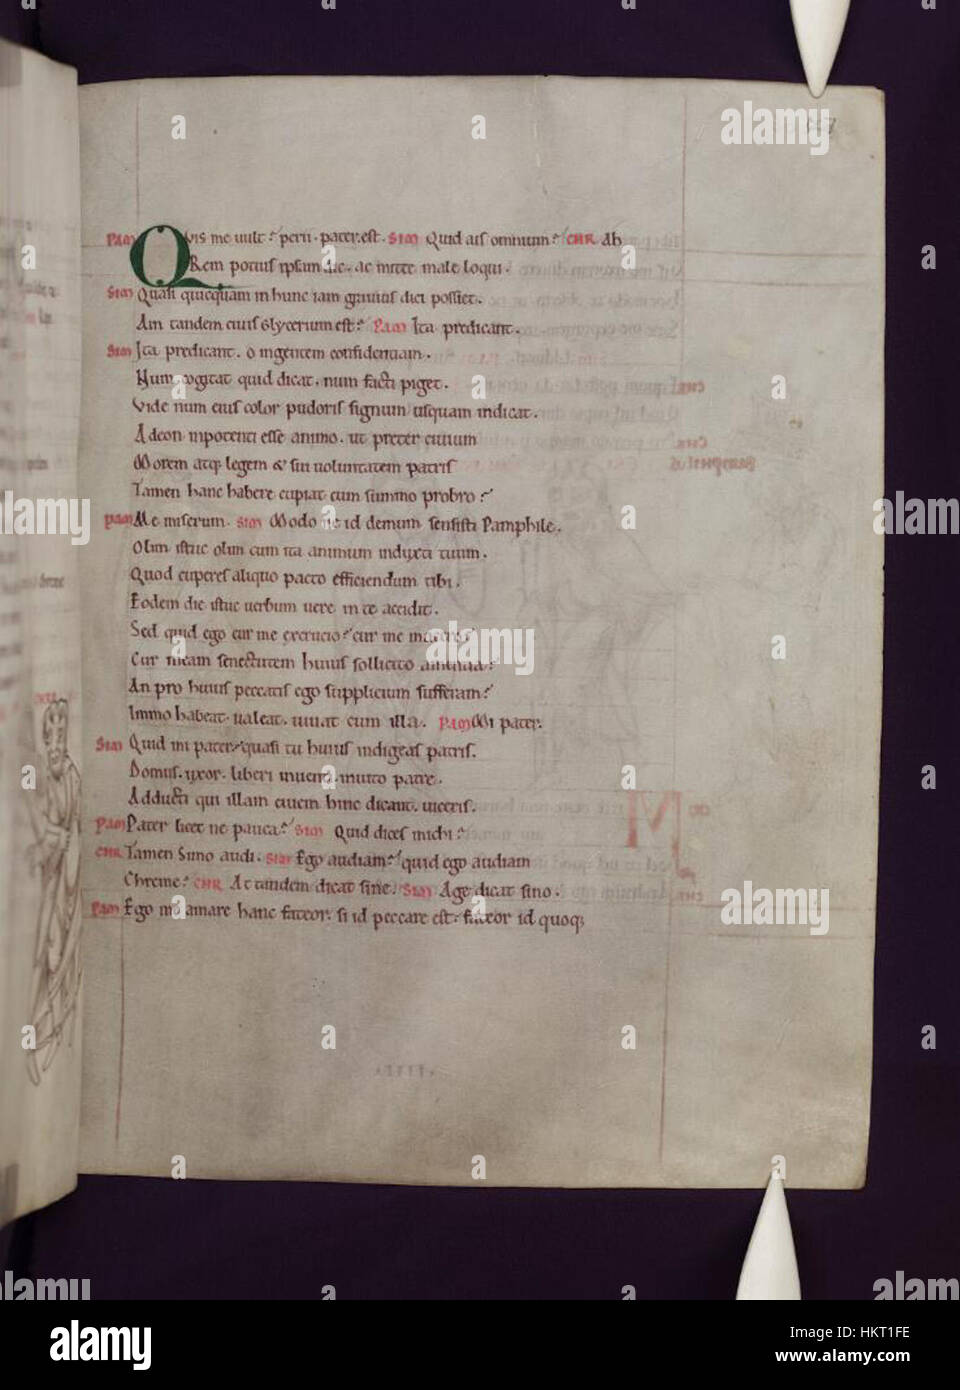 PAM QVis me uult? perii. pater est. SIM Quid ais omnium? CHR Ah
Rem potius ipsam dic. ac mitte male loqui.
SIM Quasi quicquam in hunc iam grauius dici possiet.
Ain tandem ciuis Glycerium est? PAM Ita predicant.
SIM Ita predicant. o ingentem confidentiam.
Num cogitat quid dicat. num facti piget.
Vide num eius color pudoris signum usquam indicat.
Adeon inpotenti esse animo. ut preter ciuium
Morem atq; legem & sui uoluntatem patris
Tamen hanc habere cupiat cum summo probro?
PAM Me miserum. SIM Modo ne id demum sensisti Pamphile.
Olim istuc olim cum ita animum induxti tuum.
Quod cuperes aliquo pacto efficiendum tibi.
Eodem die istuc uerbum uere in te accidit.
Sed quid ego cur me excrucio? cur me macero?
Cur meam senectutem huius sollicito amentia?
An pro huius peccatis ego supplicium sufferam?
Immo habeat. ualeat. uiuat cum illa. PAM Mi pater.
SIM Quid mi pater? quasi tu huius indigeas patris.
Domus. uxor. liberi inuenti. inuito patre.
Adducti qui illam ciuem hinc dicant. uiceris.
PAM Pater licet ne pauca? SIM Quid dices michi?
CHR Tamen Simo audi. SIM Ego audiam? quid ego audiam
Chreme? CHR At tandem dicat sine. SIM Age dicat sino.
PAM Ego me amare hanc fateor. si id peccare est. fateor id quoq;
alamy
Image ID: HKT1FE
www.alamy.com